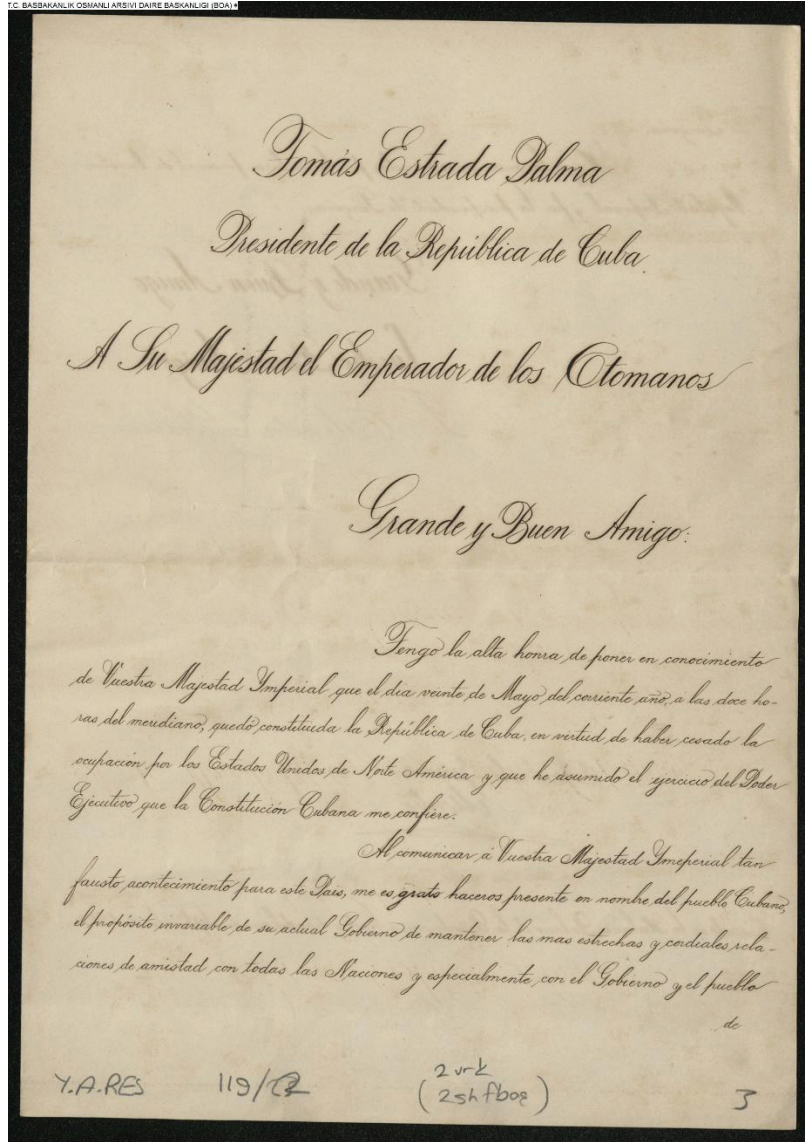 T.C. BASBAKANLIK OSMANLI ARSIVI DAIRE BASKANLIGI (BOA)
Tomás Estrada Palma
Presidente de la República de Cuba.
A Su Majestad el Emperador de los Otomanos
Grande y Buen Amigo:
Tengo la alta honra de poner en conocimiento
de Vuestra Majestad Ymperial que el dia veinte de Mayo del corriente año, a las doce ho-
ras del meridiano, quedó constituida la República de Cuba, en virtud de haber cesado la
ocupación por los Estados Unidos de Norte América y que he asumido el ejercicio del Poder
Ejecutivo que la Constitución Cubana me confiere.
Al comunicar á Vuestra Majestad Ymeperial tan
fausto acontecimiento para este Pais, me es grato haceros presente en nombre del pueblo Cubano,
el propósito invariable de su actual Gobierno de mantener las mas estrechas y cordiales rela-
ciones de amistad con todas las Naciones y especialmente con el Gobierno y el pueblo
de
Y.A.RES 119/
2 vrk
(2 sh fboş)
3